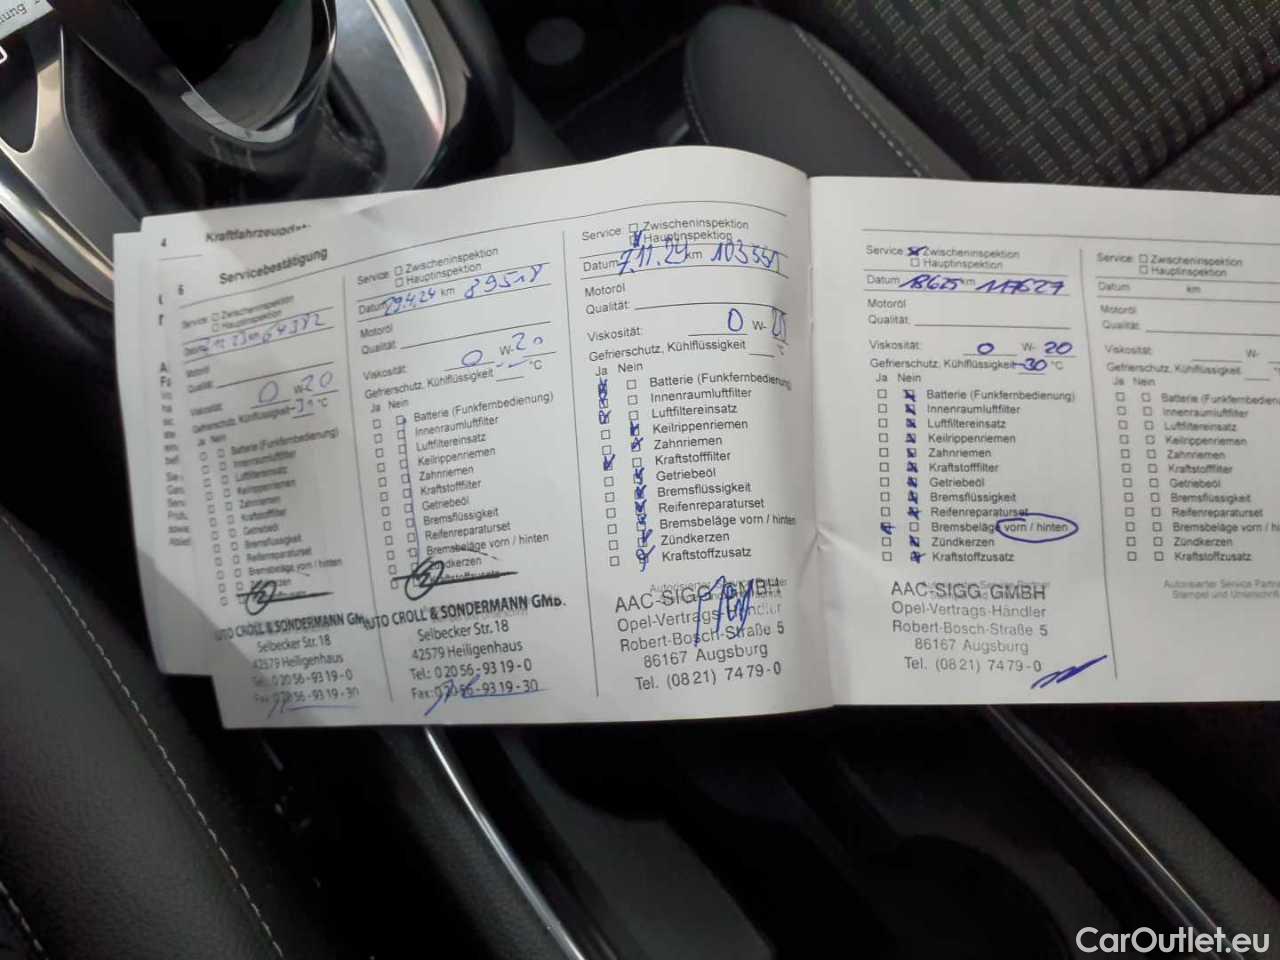 4 Kraftfahrzeug
6 Servicebestätigung
Service: ☐ Zwischeninspektion
☐ Hauptinspektion
64382
Motoröl
Qualität:
Viskosität: 0 W- 20
Gefrierschutz, Kühlflüssigkeit °C
Ja Nein
☐ ☐ Batterie (Funkfernbedienung)
☐ ☐ Innenraumluftfilter
☐ ☐ Luftfiltereinsatz
☐ ☐ Keilrippenriemen
☐ ☐ Zahnriemen
☐ ☐ Kraftstofffilter
☐ ☐ Getriebeöl
☐ ☐ Bremsflüssigkeit
☐ ☐ Reifenreparaturset
☐ ☐ Bremsbeläge vorn / hinten
UTO CROLL & SONDERMANN Gm
Selbecker Str. 18
42579 Heiligenhaus
Tel.: 0 20 56 - 93 19 - 0
Fax: 0 20 56 - 93 19 - 30
Service: ☐ Zwischeninspektion
☐ Hauptinspektion
Datum 29.4.24 km 89518
Motoröl
Qualität:
Viskosität: 0 W- 20
Gefrierschutz, Kühlflüssigkeit °C
Ja Nein
☐ ☐ Batterie (Funkfernbedienung)
☐ ☐ Innenraumluftfilter
☐ ☐ Luftfiltereinsatz
☐ ☐ Keilrippenriemen
☐ ☐ Zahnriemen
☐ ☐ Kraftstofffilter
☐ ☐ Getriebeöl
☐ ☐ Bremsflüssigkeit
☐ ☐ Reifenreparaturset
☐ ☐ Bremsbeläge vorn / hinten
☐ ☐ Zündkerzen
UTO CROLL & SONDERMANN GmbH.
Selbecker Str. 18
42579 Heiligenhaus
Tel.: 0 20 56 - 93 19 - 0
Fax: 0 20 56 - 93 19 - 30
Service: ☐ Zwischeninspektion
☒ Hauptinspektion
Datum 7.11.24 km 103551
Motoröl
Qualität:
Viskosität: 0 W- 20
Gefrierschutz, Kühlflüssigkeit °C
Ja Nein
☒ ☐ Batterie (Funkfernbedienung)
☒ ☐ Innenraumluftfilter
☒ ☐ Luftfiltereinsatz
☐ ☒ Keilrippenriemen
☐ ☒ Zahnriemen
☒ ☐ Kraftstofffilter
☐ ☒ Getriebeöl
☐ ☒ Bremsflüssigkeit
☐ ☒ Reifenreparaturset
☐ ☒ Bremsbeläge vorn / hinten
☐ ☒ Zündkerzen
☐ ☒ Kraftstoffzusatz
AAC-SIGG GMBH
Opel-Vertrags-Händler
Robert-Bosch-Straße 5
86167 Augsburg
Tel. (08 21) 74 79-0
Service: ☒ Zwischeninspektion
☐ Hauptinspektion
Datum 18625 km 117627
Motoröl
Qualität:
Viskosität: 0 W- 20
Gefrierschutz, Kühlflüssigkeit -30 °C
Ja Nein
☐ ☒ Batterie (Funkfernbedienung)
☐ ☒ Innenraumluftfilter
☐ ☒ Luftfiltereinsatz
☐ ☒ Keilrippenriemen
☐ ☒ Zahnriemen
☐ ☒ Kraftstofffilter
☐ ☒ Getriebeöl
☐ ☒ Bremsflüssigkeit
☐ ☒ Reifenreparaturset
☒ ☐ Bremsbeläge vorn / hinten
☐ ☒ Zündkerzen
☐ ☒ Kraftstoffzusatz
AAC-SIGG GMBH
Opel-Vertrags-Händler
Robert-Bosch-Straße 5
86167 Augsburg
Tel. (08 21) 74 79-0
Service: ☐ Zwischeninspektion
☐ Hauptinspektion
Datum km
Motoröl
Qualität:
Viskosität: W-
Gefrierschutz, Kühlflüssigkeit
Ja Nein
☐ ☐ Batterie (Funkfernbedien
☐ ☐ Innenraumluftfilter
☐ ☐ Luftfiltereinsatz
☐ ☐ Keilrippenriemen
☐ ☐ Zahnriemen
☐ ☐ Kraftstofffilter
☐ ☐ Getriebeöl
☐ ☐ Bremsflüssigkeit
☐ ☐ Reifenreparaturset
☐ ☐ Bremsbeläge vorn / hi
☐ ☐ Zündkerzen
☐ ☐ Kraftstoffzusatz
Autorisierter Service Partn
Stempel und Unterschrift
CarOutlet.eu